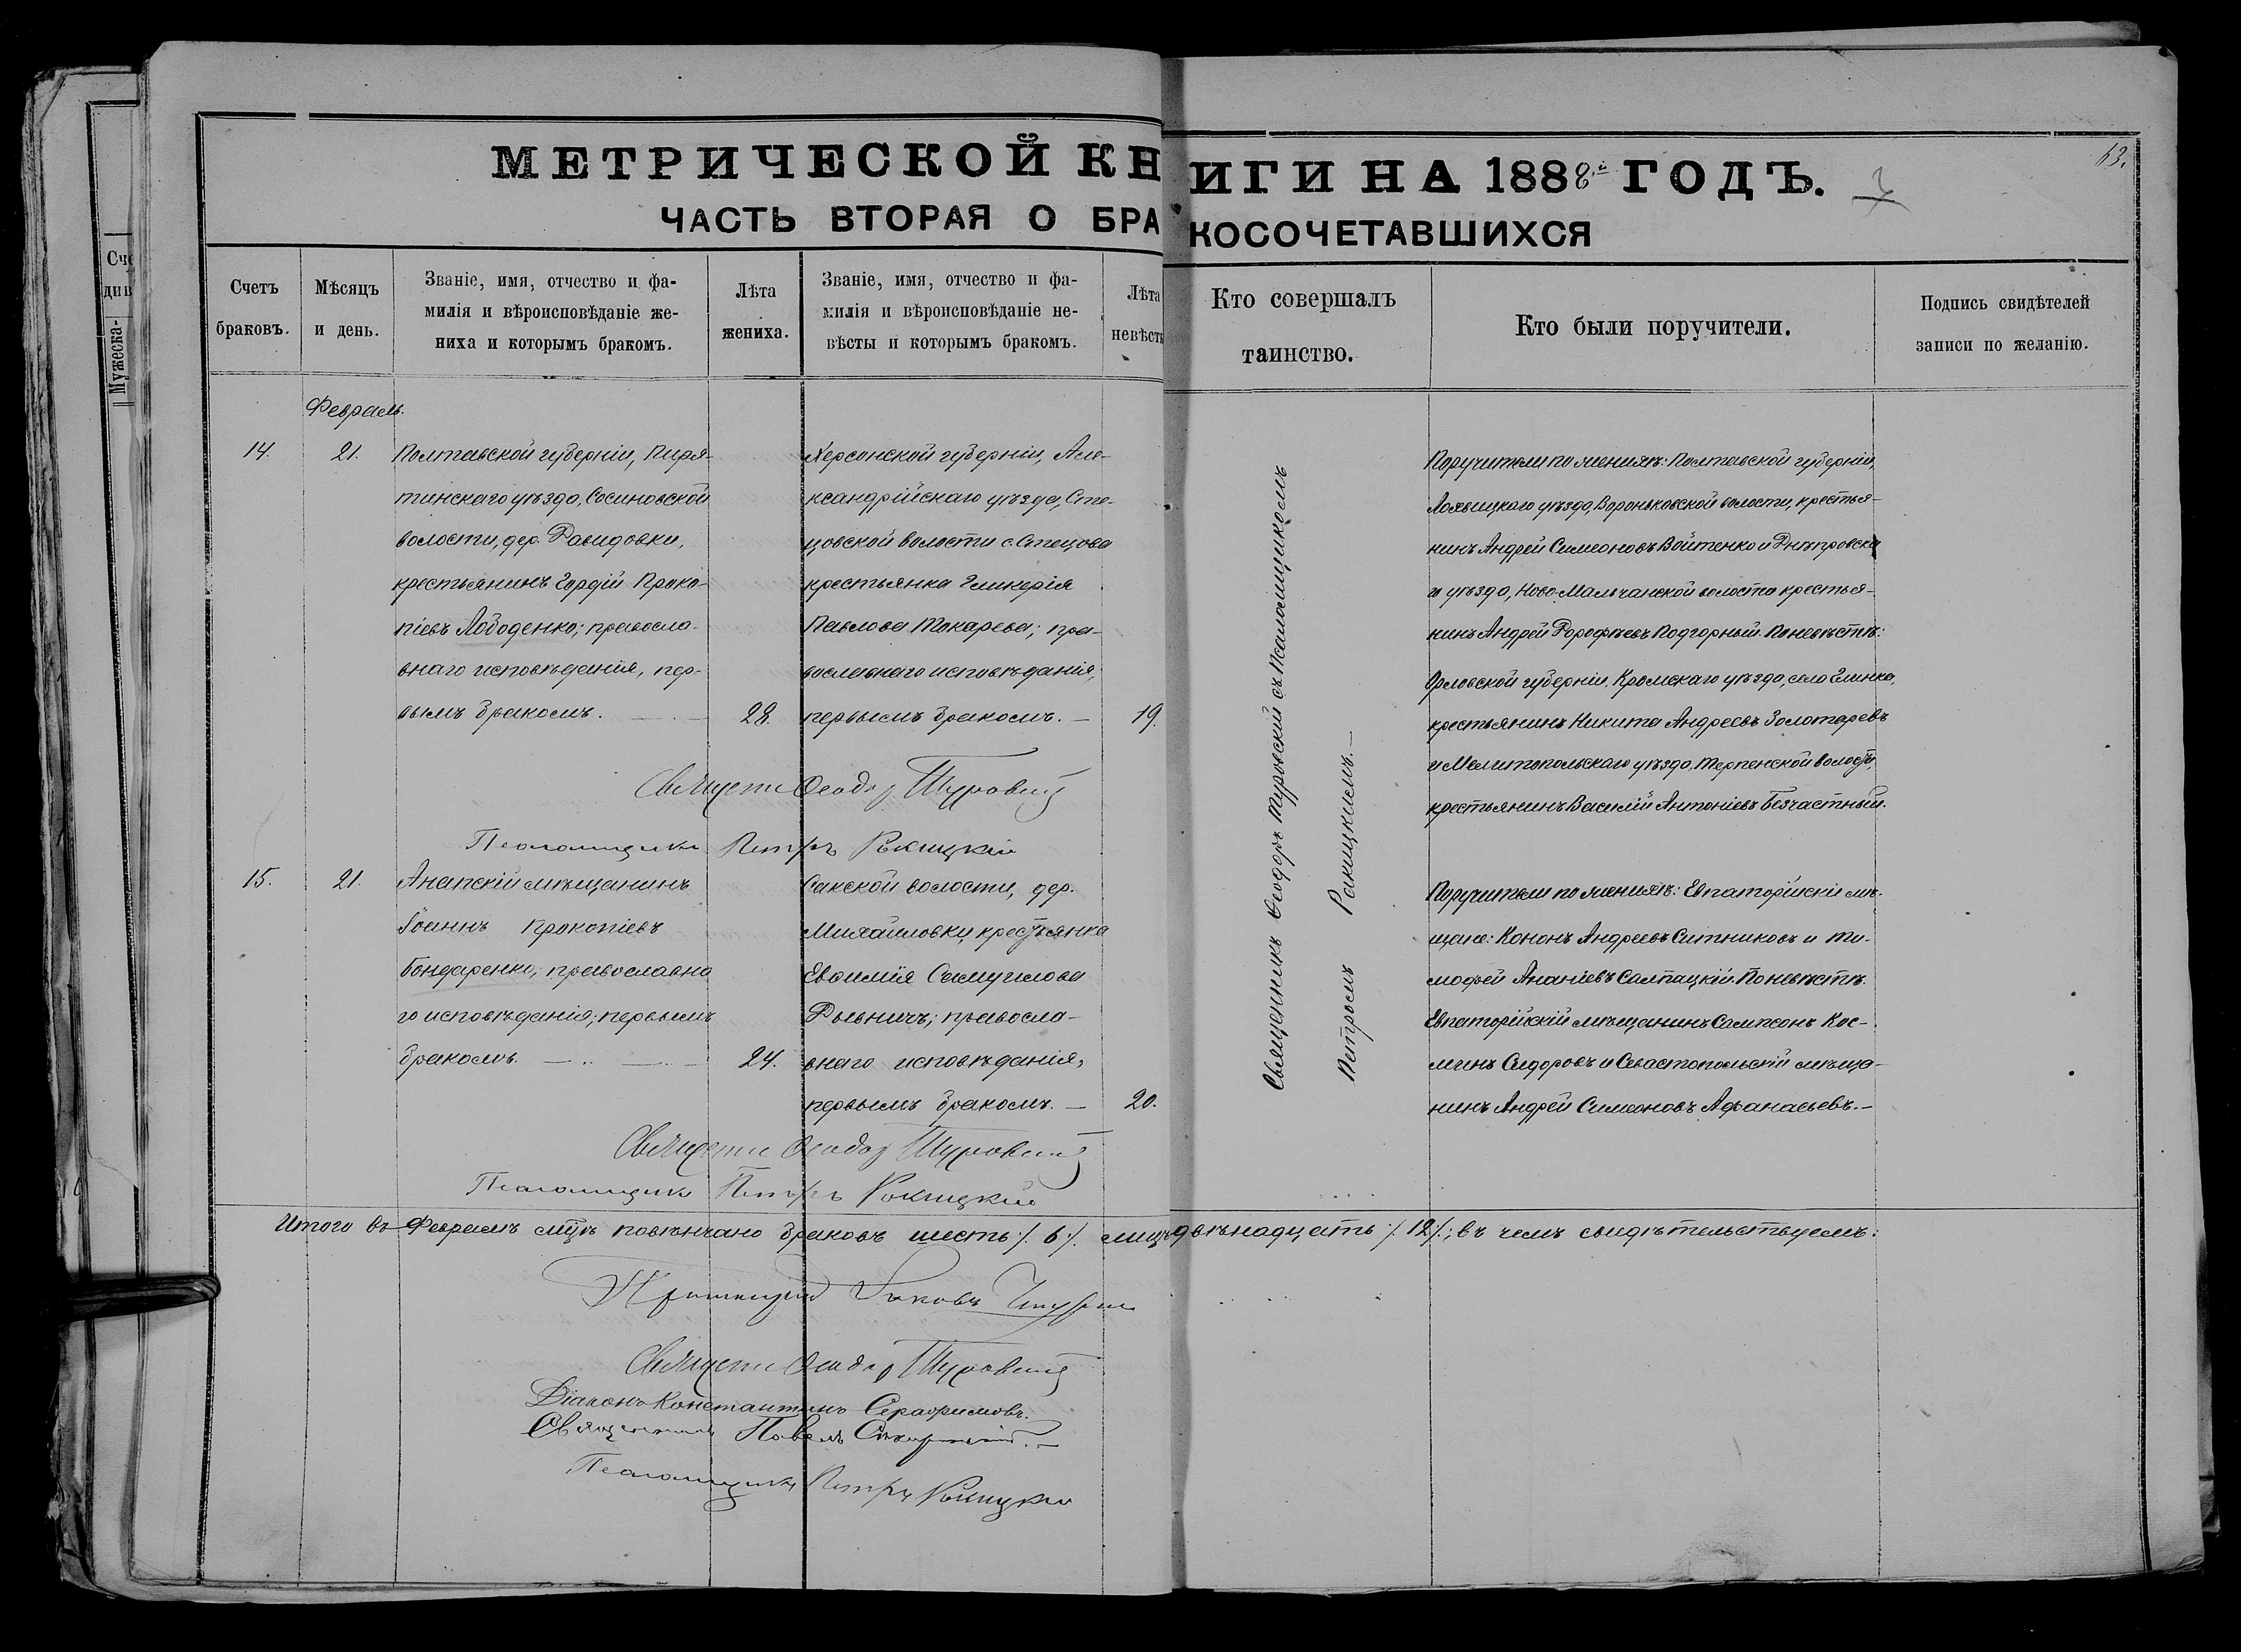 МЕТРИЧЕСКОЙ КНИГИ НА 1888й ГОДЪ.
63.
ЧАСТЬ ВТОРАЯ О БРАКОСОЧЕТАВШИХСЯ
Счетъ
браковъ.
Мѣсяцъ
и день.
Званіе, имя, отчество и фа-
милія и вѣроисповѣданіе же-
ниха и которымъ бракомъ.
Лѣта
жениха.
Званіе, имя, отчество и фа-
милія и вѣроисповѣданіе не-
вѣсты и которымъ бракомъ.
Лѣта
невѣсты
Кто совершалъ
таинство.
Кто были поручители.
Подпись свидѣтелей
записи по желанію.
Мужеска-
Февраль.
14.
21.
Полтавской губерніи, Пиря-
тинскаго уѣзда, Сосиновской
волости, дер. Давидовки,
крестьянинъ Гордій Проко-
піевъ Лободенко; правосла-
внаго исповѣданія, пер-
вымъ бракомъ.
28.
Херсонской губерніи, Але-
ксандрійскаго уѣзда, Сте-
цовской волости с. Стецова
крестьянка Гликерія
Павлова Токарева; пра-
вославнаго исповѣданія,
первымъ бракомъ. —
19.
Священникъ Ѳеодоръ Туровскій съ псаломщикомъ
Петромъ Ракицкимъ. —
Поручители по женихѣ: Полтавской губерніи,
Лохвицкаго уѣзда, Вороньковской волости, крестья-
нинъ Андрей Симеоновъ Войтенко и Днѣпровска
го уѣзда, Ново-Мальчанской волости крестья-
нинъ Андрей Дорофѣевъ Подгорный. По невѣстѣ:
Орловской губерніи, Кромскаго уѣзда, села Глинка,
крестьянинъ Никита Андреевъ Золотаревъ
и Мелитопольскаго уѣзда, Терпенской волости,
крестьянинъ Василій Антоніевъ Безчастный.
Священ Ѳеодор Туровскій
Псаломщикъ Петръ Ракицкій
15.
21.
Анапскій мѣщанинъ
Іоаннъ Прокопіевъ
Бондаренко, православна
го исповѣданія; первымъ
бракомъ.
24.
Сакской волости, дер.
Михайловки, крестьянка
Евфимія Самуилова
Рыбничъ; правосла-
внаго исповѣданія,
первымъ бракомъ. —
20.
Поручители по женихѣ: Евпаторійскіе мѣ-
щане: Кононъ Андреевъ Ситниковъ и Ти-
мофей Ананіевъ Салтацкій. По невѣстѣ:
Евпаторійскій мѣщанинъ Сампсонъ Кос-
минъ Сидоровъ и Севастопольскій мѣща-
нинъ Андрей Симеоновъ Афанасьевъ. —
Священ Ѳеодор Туровскій
Псаломщикъ Петръ Ракицкій
Итого въ Февралѣ мцѣ повѣнчано браковъ шесть /. 6 /. лицъ двѣнадцать /. 12 /.; въ чемъ свидѣтельствуемъ:
Протоіерей Іаковъ
Священ Ѳеодор Туровскій
Діаконъ Константинъ Серафимовъ.
Священникъ Павелъ
Псаломщикъ Петръ Ракицкій